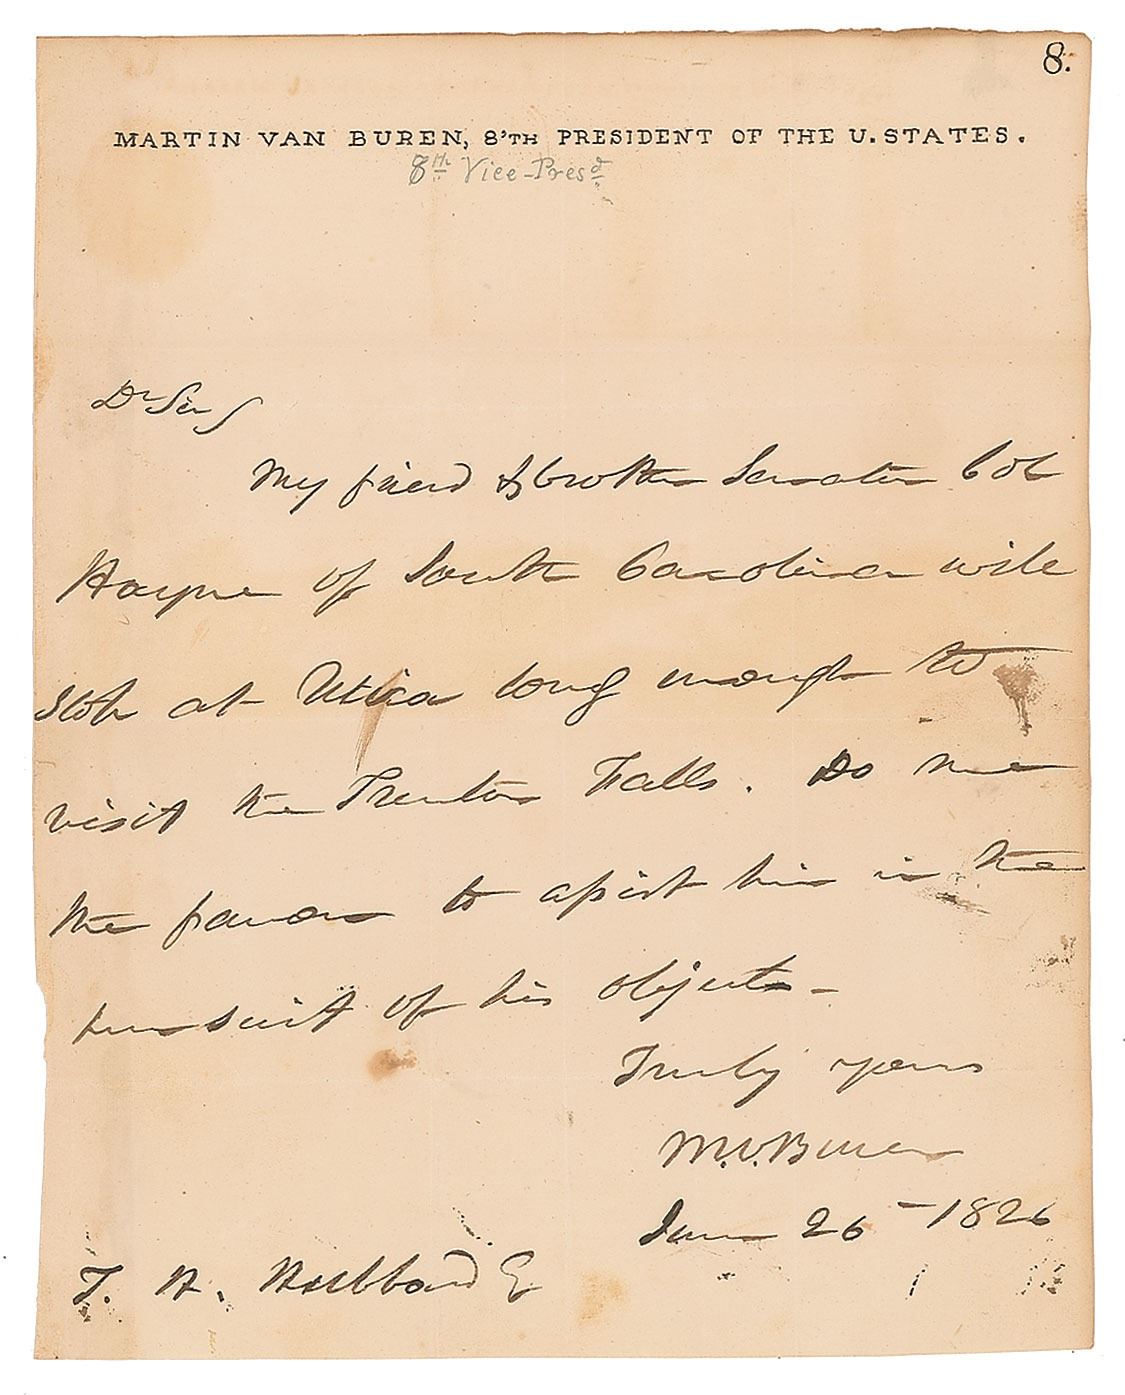 8.
MARTIN VAN BUREN, 8'TH PRESIDENT OF THE U. STATES.
8th Vice-Presd
Dr Sir
My friend & brother Senator Col
Hayne of South Carolina will
stop at Utica long enough to
visit the Trenton Falls. Do me
the favour to assist him in the
pursuit of his objects -
Truly yours
M. V. Buren
June 26 - 1826
T. H. Hubbard E